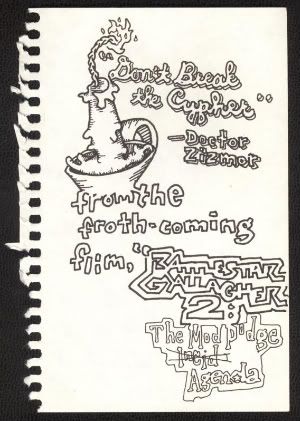 "Don't Break
the Cypher"
—Doctor
Zizmor
from the
froth-coming
film, "BATTLESTAR
GALLAGHER
2:
The Mod Podge
lucid
Agenda